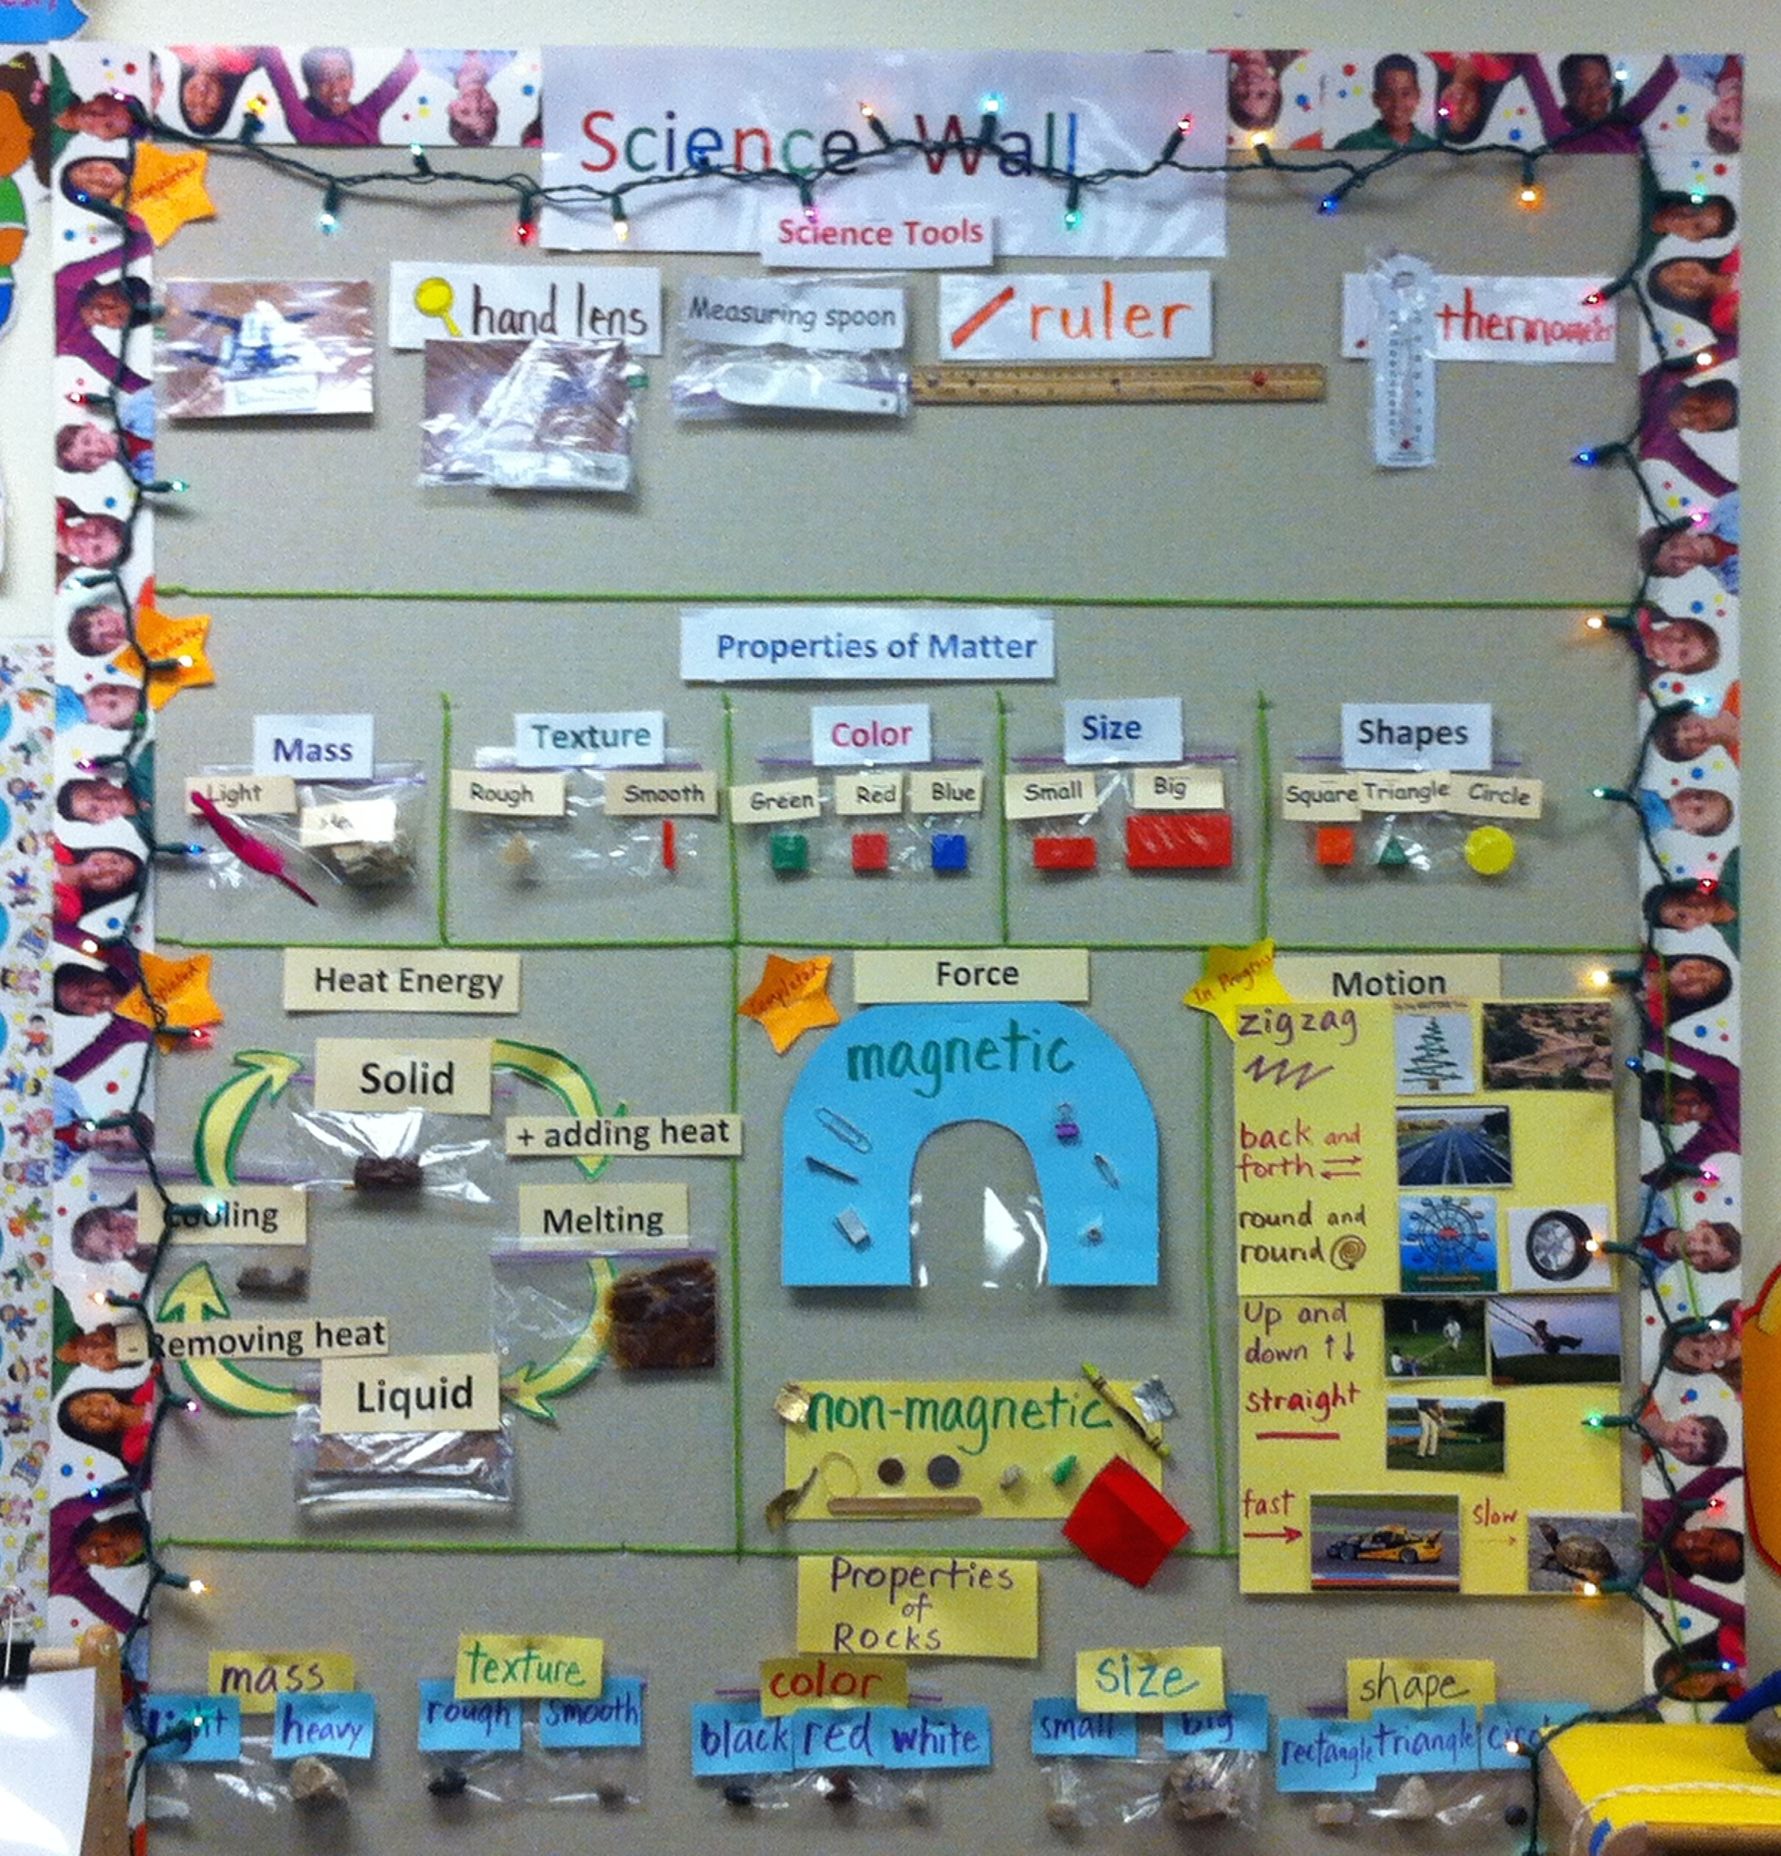 Science Wall
Science Tools
Completed
hand lens
Measuring spoon
ruler
thermometer
Completed
Properties of Matter
Mass
Light
Texture
Rough
Smooth
Color
Green
Red
Blue
Size
Small
Big
Shapes
Square
Triangle
Circle
Completed
Heat Energy
Solid
+ adding heat
Melting
Liquid
- Removing heat
Cooling
Completed
Force
magnetic
non-magnetic
In Progress
Motion
zigzag
back and
forth
round and
round
Up and
down ↑↓
straight
fast
slow
Properties
of
Rocks
mass
light
heavy
texture
rough
smooth
color
black
red
white
size
small
big
shape
rectangle
triangle